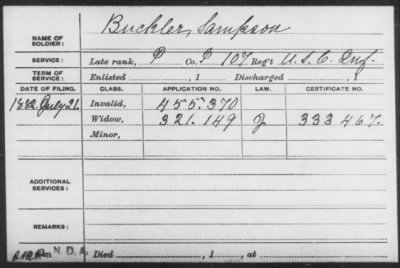 NAME OF SOLDIER: Buckler, Sampson
SERVICE: Late rank, P Co. 107 Reg't U.S.C. Inf.
TERM OF SERVICE: Enlisted , 1 Discharged , 1
DATE OF FILING. CLASS. APPLICATION NO. LAW. CERTIFICATE NO.
1882 July 21. Invalid, 455.370
Widow, 321.149 333 467.
Minor,
ADDITIONAL SERVICES:
REMARKS:
N.D.A. Died , 1 , at